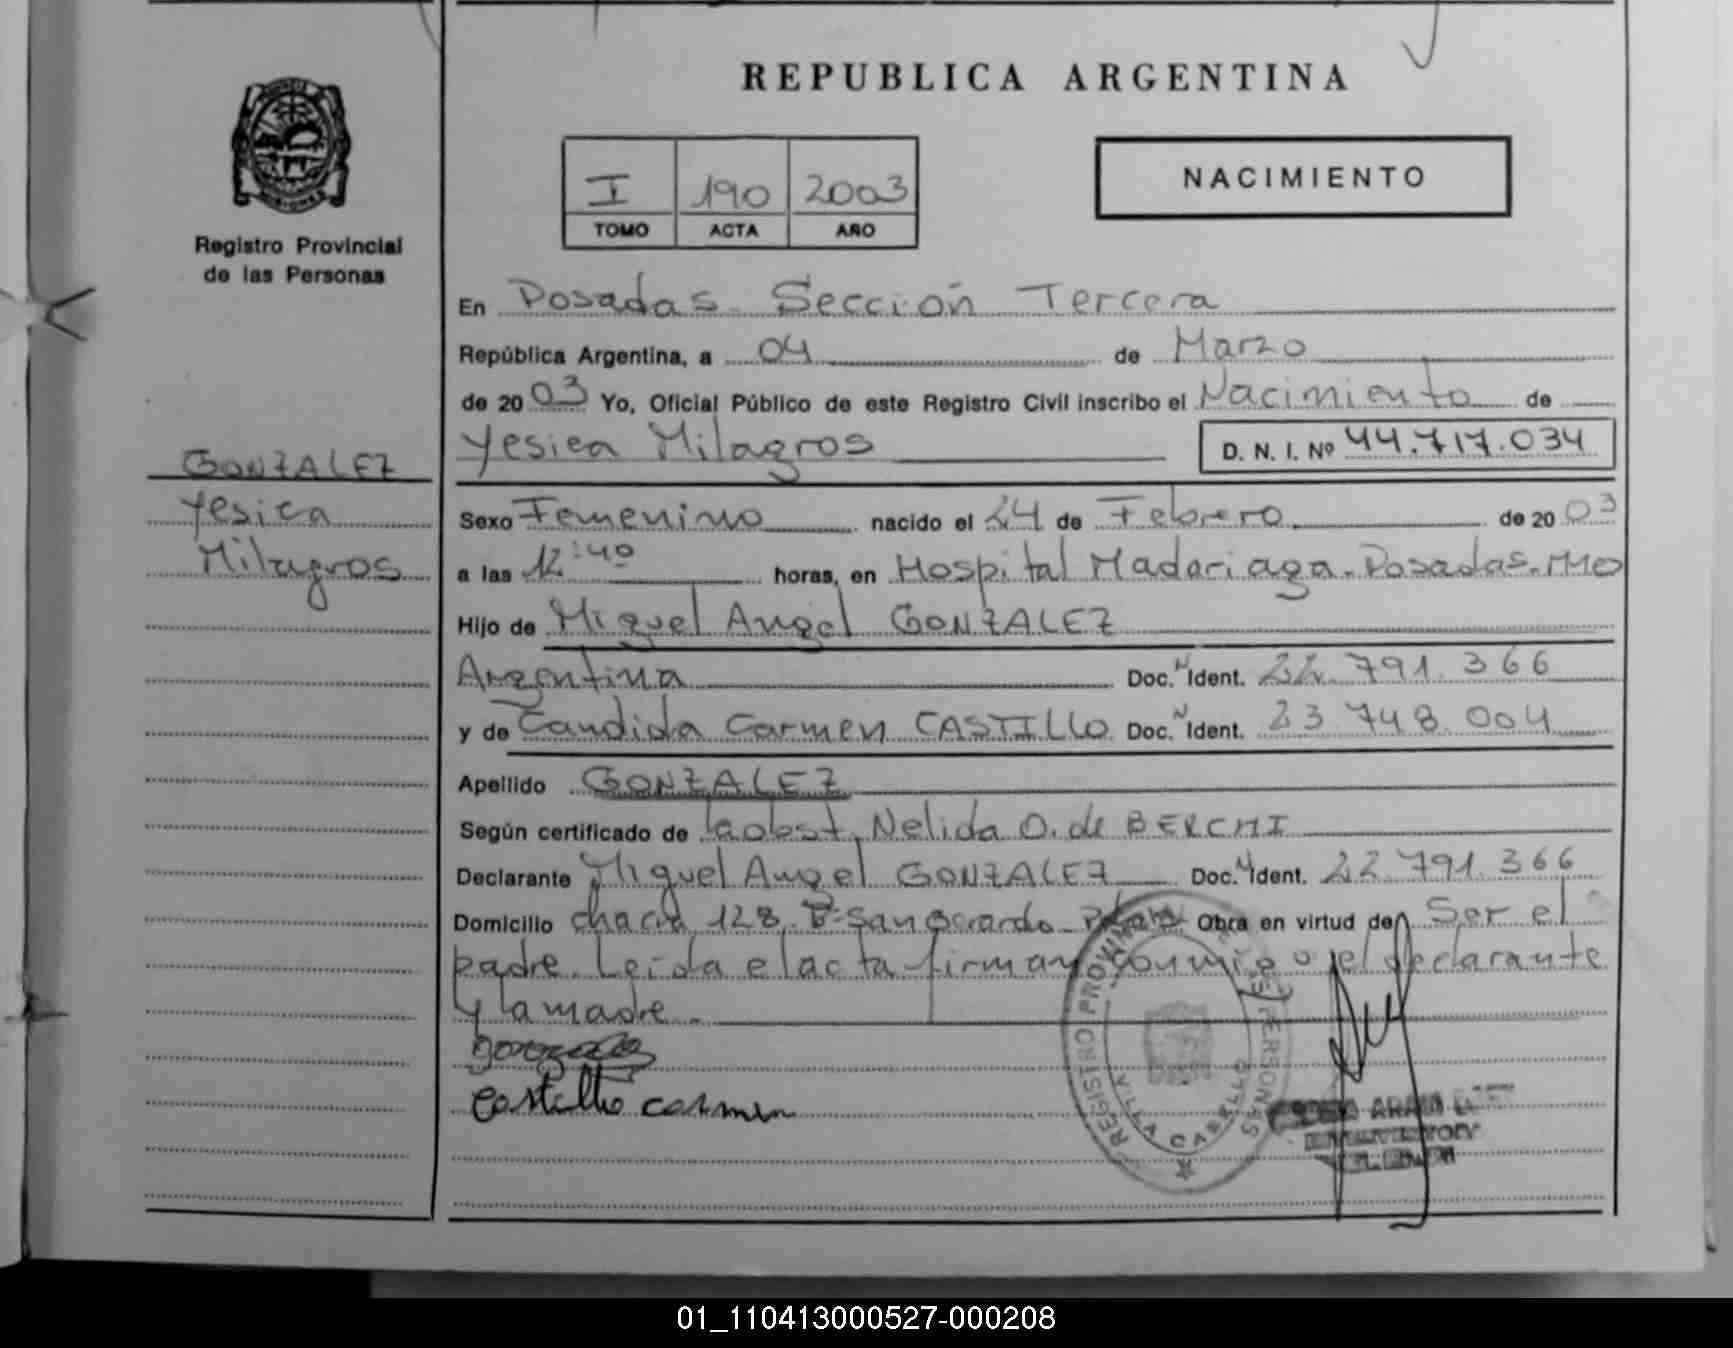 REPUBLICA ARGENTINA
I 190 2003
TOMO ACTA AÑO
NACIMIENTO
MISIONES
Registro Provincial
de las Personas
GONZALEZ
Yesica
Milagros
En Posadas Sección Tercera
República Argentina, a 04 de Marzo
de 2003 Yo, Oficial Público de este Registro Civil inscribo el Nacimiento de
Yesica Milagros D. N. I. Nº 44.717.034
Sexo Femenino nacido el 24 de Febrero de 2003
a las 12:40 horas, en Hospital Madariaga - Posadas - Mnes
Hijo de Miguel Angel GONZALEZ
Argentina Doc. N Ident. 22.791.366
y de Candida Carmen CASTILLO Doc. N Ident. 23.748.004
Apellido GONZALEZ
Según certificado de Nelida O. de BERCHI
Declarante Miguel Angel GONZALEZ Doc. N Ident. 22.791.366
Domicilio chacra 128 Bº San Gerardo Obra en virtud de Ser el
padre. Leida el acta firman conmigo el declarante
y la madre.
Castillo Carmen
REGISTRO PROVINCIAL DE LAS PERSONAS
VILLA CABELLO
01_110413000527-000208